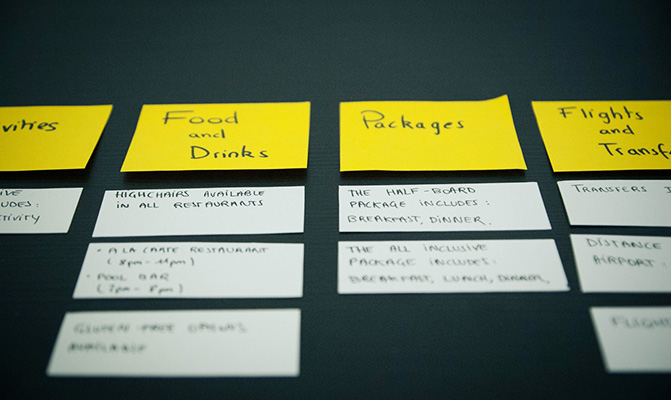 vities
IVE
CLUDES:
tivity
Food
and
Drinks
HIGHCHAIRS AVAILABLE
IN ALL RESTAURANTS
• A LA CARTE RESTAURANT
(8pm - 11pm)
• POOL BAR
(2pm - 8pm)
GLUTEN-FREE OPTIONS
AVAILABLE
Packages
THE HALF-BOARD
PACKAGE INCLUDES:
BREAKFAST, DINNER.
THE ALL INCLUSIVE
PACKAGE INCLUDES:
BREAKFAST, LUNCH, DINNER,
Flights
and
Transfe
TRANSFERS
DISTANCE
AIRPORT:
FLIGHT